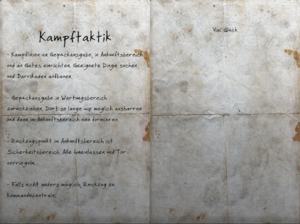 Kampftaktik
- Kampflinie an Gepäckausgabe, in Ankunftsbereich
und an Gates einrichten. Geeignete Dinge suchen
und Barrikaden aufbauen.
- Gepäckausgabe in Wartungsbereich
zurückziehen. Dort so lange wie möglich ausharren
und dann in Ankunftsbereich neu formieren.
- Rückzugspunkt in Ankunftsbereich ist
Sicherheitsbereich. Alle hineinlassen und Tor
verriegeln.
- Falls nicht anders möglich, Rückzug in
Kommandozentrale.
Viel Glück